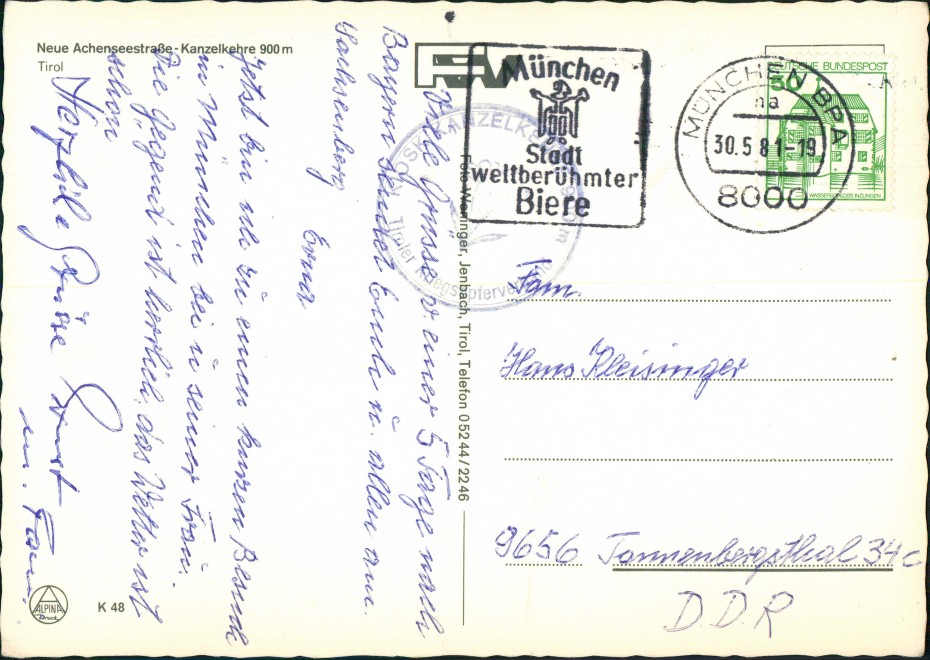 Neue Achenseestraße - Kanzelkehre 900 m
Tirol
Viele Grüsse v. einer 5 Tage nach
Bayern sendet Euch u. allen am
Sachsenberg
Erna
Jetzt bin ich zu einen kurzen Besuch
in München bei u seiner Frau.
Die Gegend ist herrlich, das Wetter ist
schön
Herzliche Grüße
u. Fam.
ALPINA
Druck
K 48
Foto Weninger, Jenbach, Tirol, Telefon 0 52 44 / 22 46
KIOSK KANZELKEHRE
Tiroler Kriegsopferverband
München
Stadt
weltberühmter
Biere
MÜNCHEN BPA
na
30.5.81-19
8000
DEUTSCHE BUNDESPOST
50
WASSERSCHLOSS INZLINGEN
Fam.
Hans Kleisinger
9656 Tannenbergsthal 34c
DDR